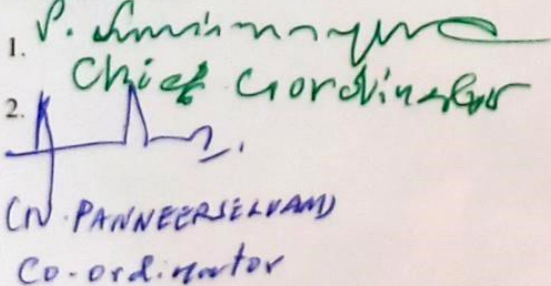 1.
Chief Coordinator
2.
(N. PANNEERSELVAM)
Co-ordinator